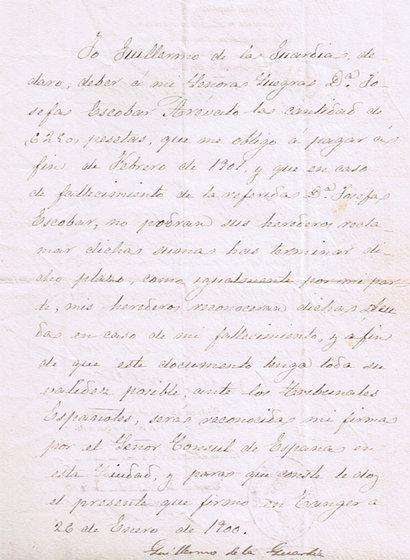 Yo Guillermo de la Guardia, de
claro, deber á mi Señora Suegra D.ª Jo-
sefa Escobar Arevalo la cantidad de
pesetas, que me obligo á pagar á
fin de Febrero de 1901, y que en caso
de fallecimiento de la referida D.ª Josefa
Escobar, no podran sus herederos recla
mar dicha suma has terminar di-
cho plazo, como igualmente por mi par
te, mis herederos reconoceran dicha deu
da en caso de mi fallecimiento, y a fin
de que este documento tenga toda su
validez posible, ante los Tribunales
Españoles, sera reconocida mi firma
por el Señor Consul de España en
esta Ciudad, y para que conste le doy
el presente que firmo en Tanger a
26 de Enero de 1900.
Guillermo de la Guardia